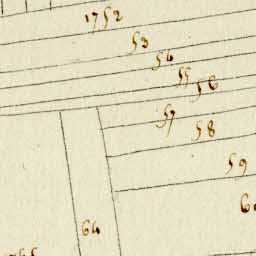 1752
53
54
55
56
57
58
59
64